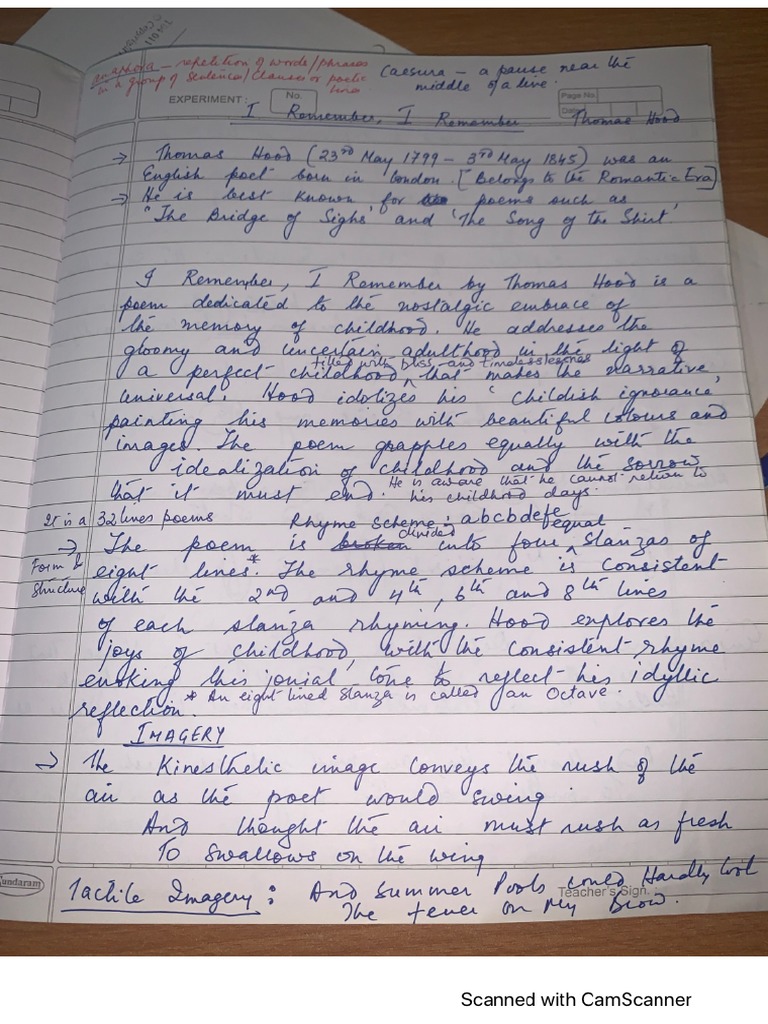 anaphora - repetition of words/phrases
in a group of sentence/clauses or poetic
line
Caesura - a pause near the
middle of a line.
EXPERIMENT :
No.
Page No.
Date
I Remember, I Remember
Thomas Hood
→ Thomas Hood (23rd May 1799 - 3rd May 1845) was an
English poet born in London. [Belongs to the Romantic Era]
→ He is best known for poems such as
"The Bridge of Sighs' and 'The Song of the Shirt'
I Remember, I Remember by Thomas Hood is a
poem dedicated to the nostalgic embrace of
the memory of childhood. He addresses the
gloomy and uncertain adulthood in the light of
filled with bliss and timelessness
a perfect childhood, that makes the narrative
universal. Hood idolizes his 'childish ignorance,
painting his memories with beautiful colours and
images. The poem grapples equally with the
idealization of childhood and the sorrow
that it must end. He is aware that he cannot return to
his childhood days.
It is a 32 lines poems
Rhyme Scheme : abcbdefe
Form &
Structure
→ The poem is broken divided into four equal stanzas of
eight lines.* The rhyme scheme is consistent
with the 2nd and 4th, 6th and 8th lines
of each stanza rhyming. Hood explores the
joys of childhood, with the consistent rhyme
evoking this jovial tone to reflect his idyllic
reflection. * An eight lined stanza is called an Octave.
IMAGERY
→ The Kinesthetic image conveys the rush of the
air as the poet would swing
And thought the air must rush as fresh
To swallows on the wing
Sundaram
Teacher's Sign. :
Tactile Imagery : And Summer Pools could Hardly Cool
The fever on My Brow.
Scanned with CamScanner